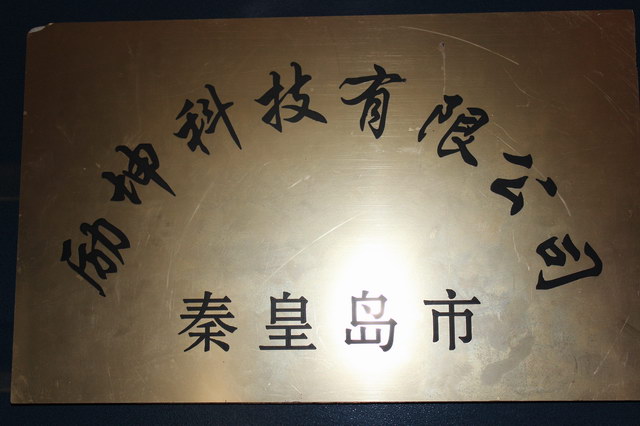 励神科技有限公司
秦皇岛市